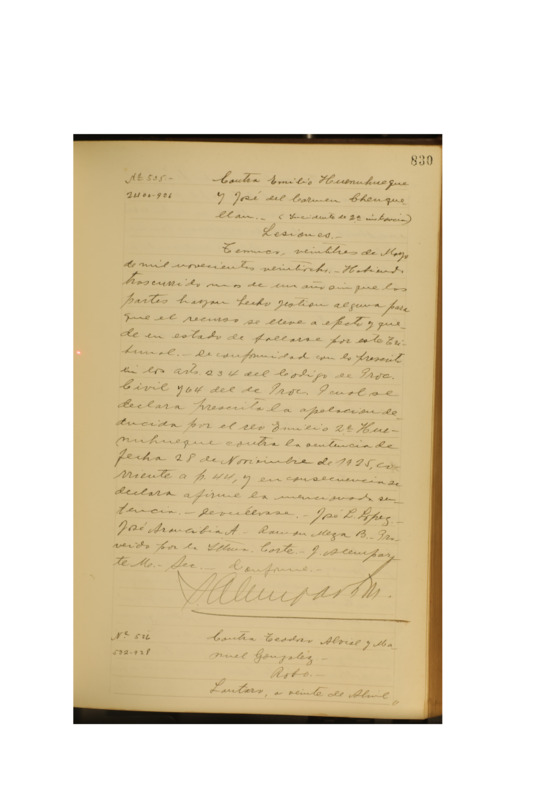 830
Nº 535- Contra Emilio Huenuhueque
2400-926 y José del Carmen Chenque
llan.- (Incidente de 2ª instancia)
Lesiones.-
Temuco, veintitres de Mayo
de mil novecientos veintiocho.- Habiendo
trascurrido mas de un año sin que las
partes hayan hecho jestion alguna para
que el recurso se lleve a efecto y que-
de en estado de fallarse por este Tri-
bunal.- De conformidad con lo prescrit
en los arts. 234 del Codigo de Proc.
Civil y 44 del de Proc. Penal se
declara prescrita la apelacion de-
ducida por el reo Emilio 2º Hue-
nuhueque contra la sentencia de
fecha 28 de Noviembre de 1925, co-
rriente a f. 44, y en consecuencia se
declara a firme la mencionada sen-
tencia.- Devuélvase.- José L. López.-
José Arancibia A.- Ramon Meza B.- Pro-
veido por la Iltma. Corte.- J. Alempar
te M.- Sec.- Conforme.-
Nº 536 Contra Teodoro Abrial y Ma-
nuel Gonzalez.-
Robo.-
Lautaro, a veinte de Abril